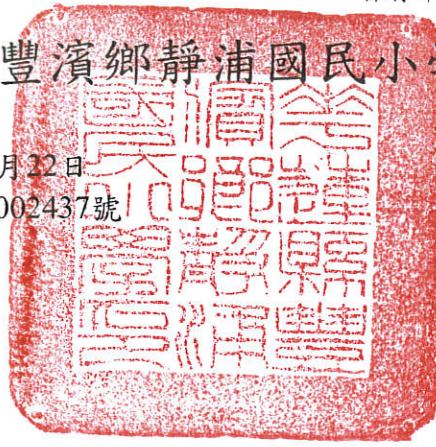 豐濱鄉靜浦國民小
月22日
002437號
花蓮縣豐
濱鄉靜浦
國民小學印